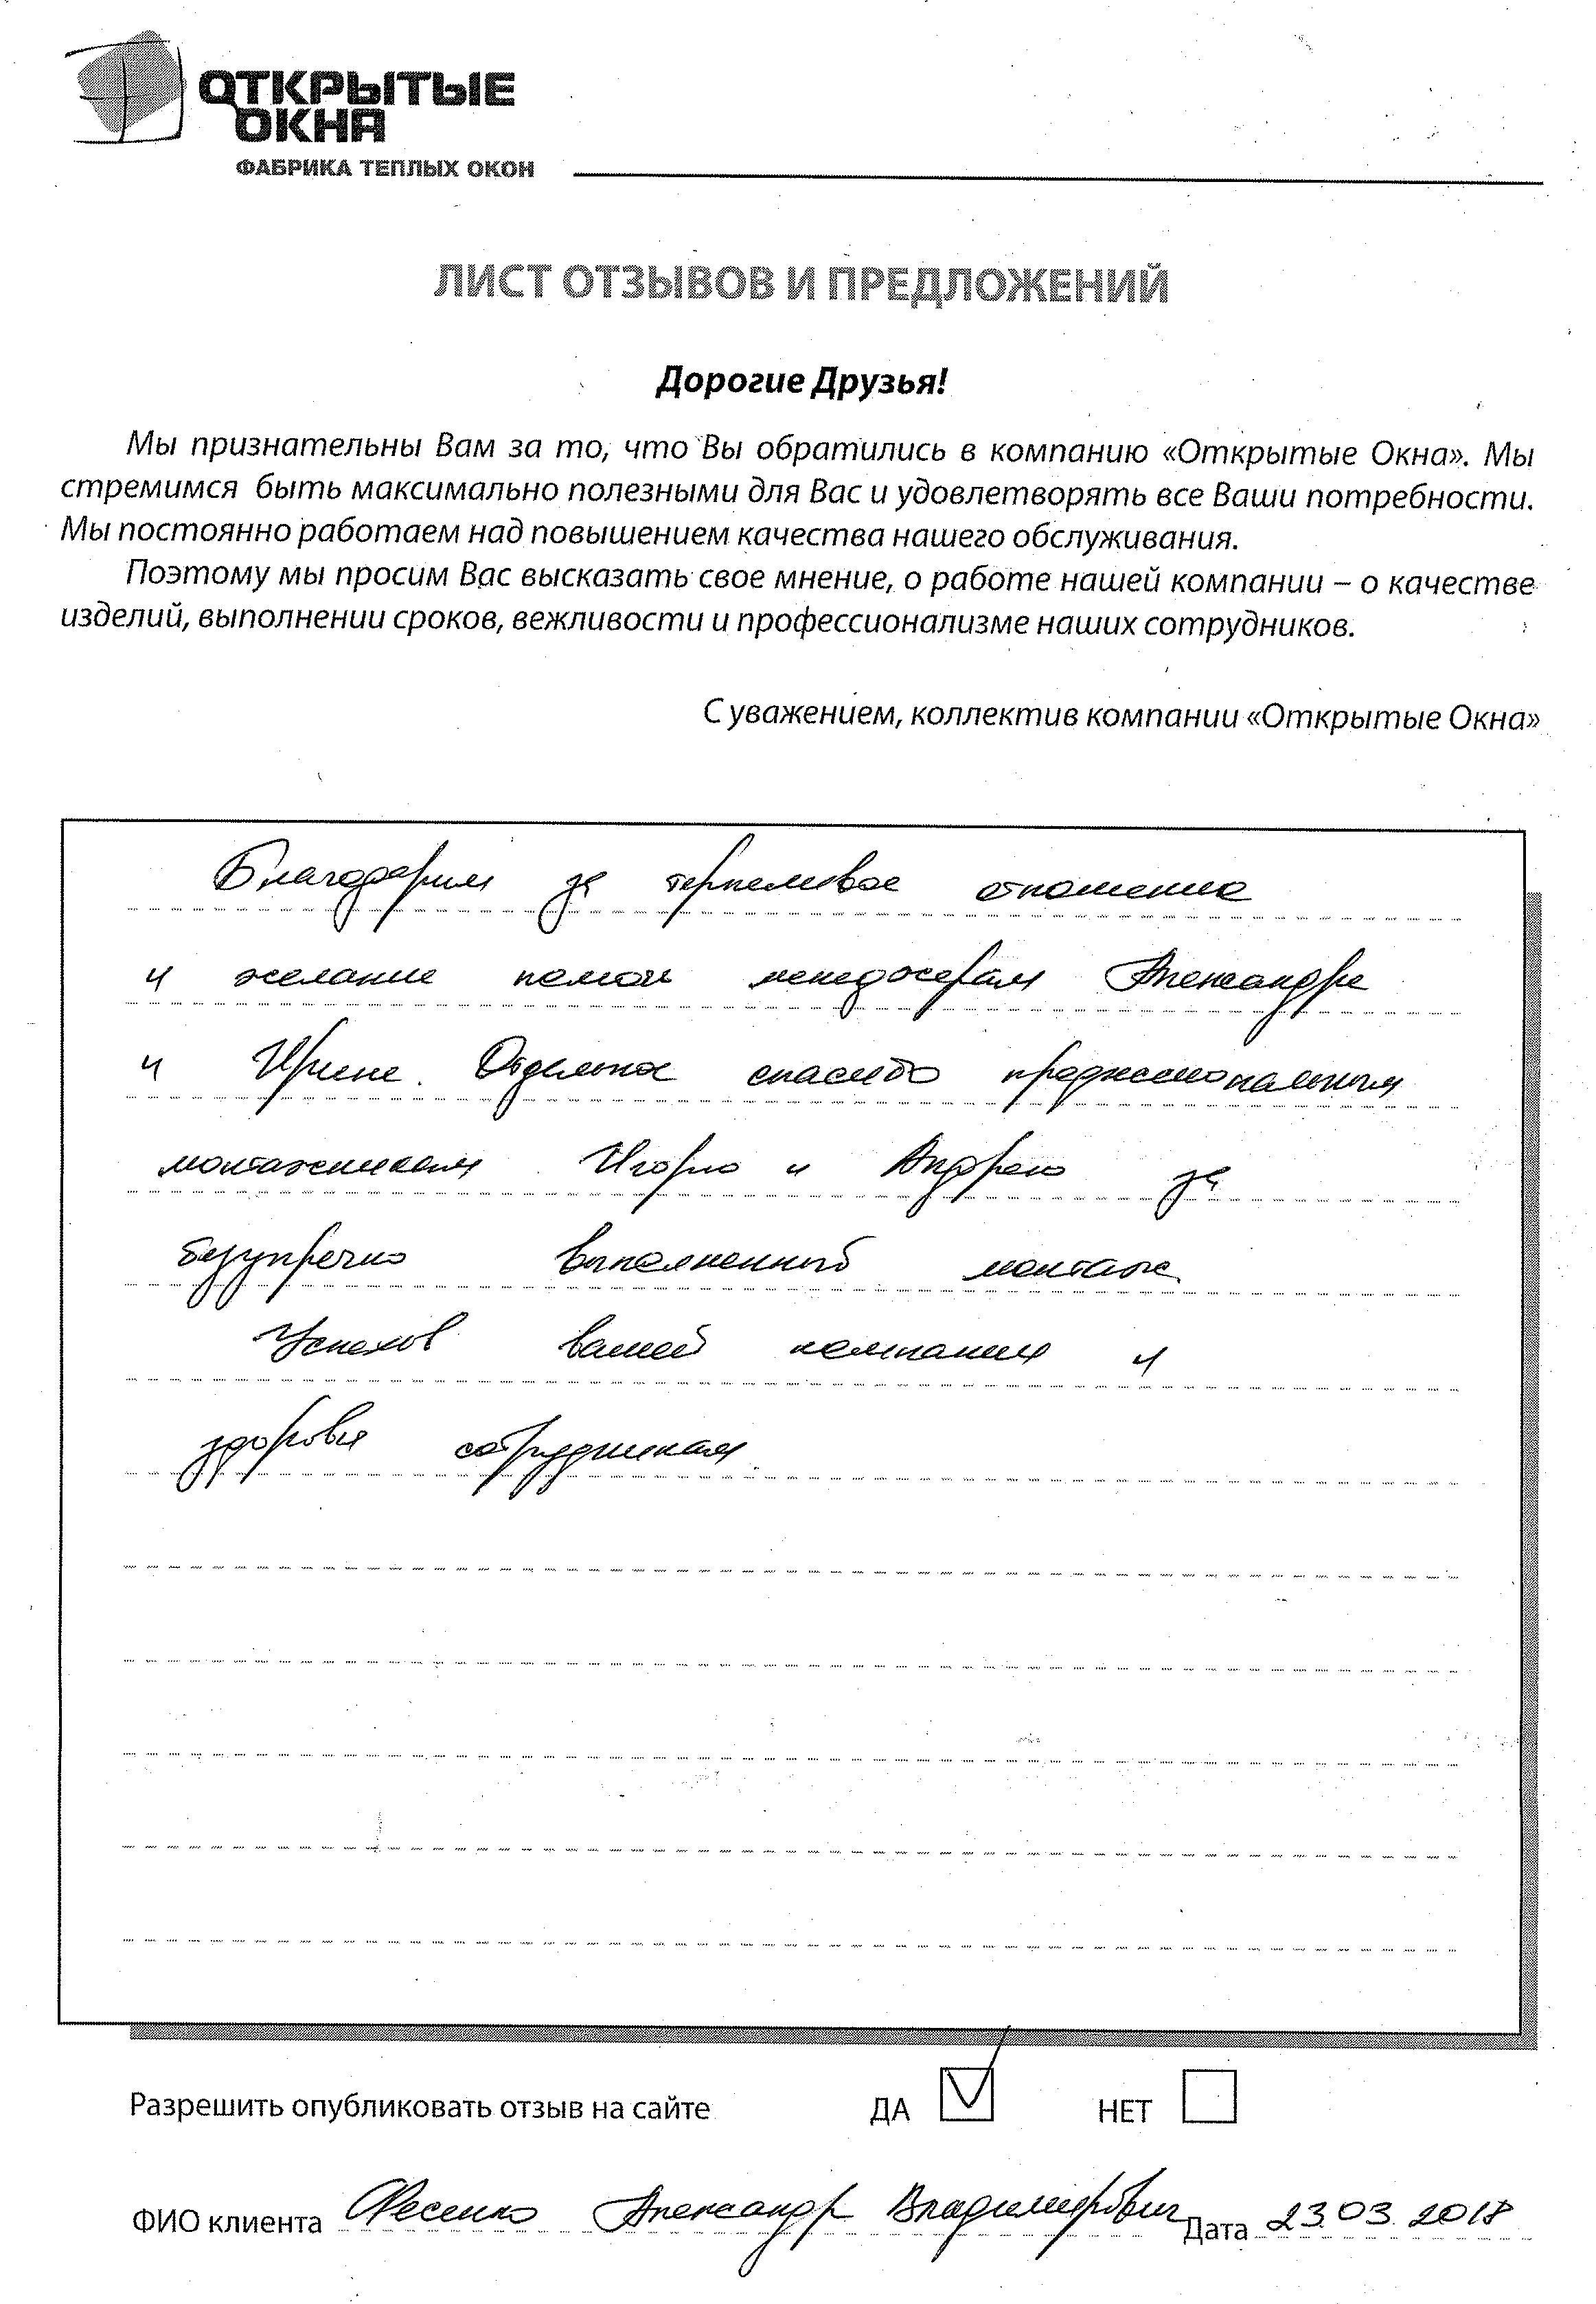 ОТКРЫТЫЕ
ОКНА
ФАБРИКА ТЕПЛЫХ ОКОН
ЛИСТ ОТЗЫВОВ И ПРЕДЛОЖЕНИЙ
Дорогие Друзья!
Мы признательны Вам за то, что Вы обратились в компанию «Открытые Окна». Мы
стремимся быть максимально полезными для Вас и удовлетворять все Ваши потребности.
Мы постоянно работаем над повышением качества нашего обслуживания.
Поэтому мы просим Вас высказать свое мнение, о работе нашей компании – о качестве
изделий, выполнении сроков, вежливости и профессионализме наших сотрудников.
С уважением, коллектив компании «Открытые Окна»
Благодарим за терпеливое отношение
и желание помочь менеджерам Александре
и Ирине. Отдельное спасибо профессиональным
монтажникам Игорю и Андрею за
безупречно выполненный монтаж.
Успехов вашей компании и
здоровья сотрудникам.
Разрешить опубликовать отзыв на сайте ДА НЕТ
ФИО клиента Фесенко Александр Владимирович Дата 23.03.2018